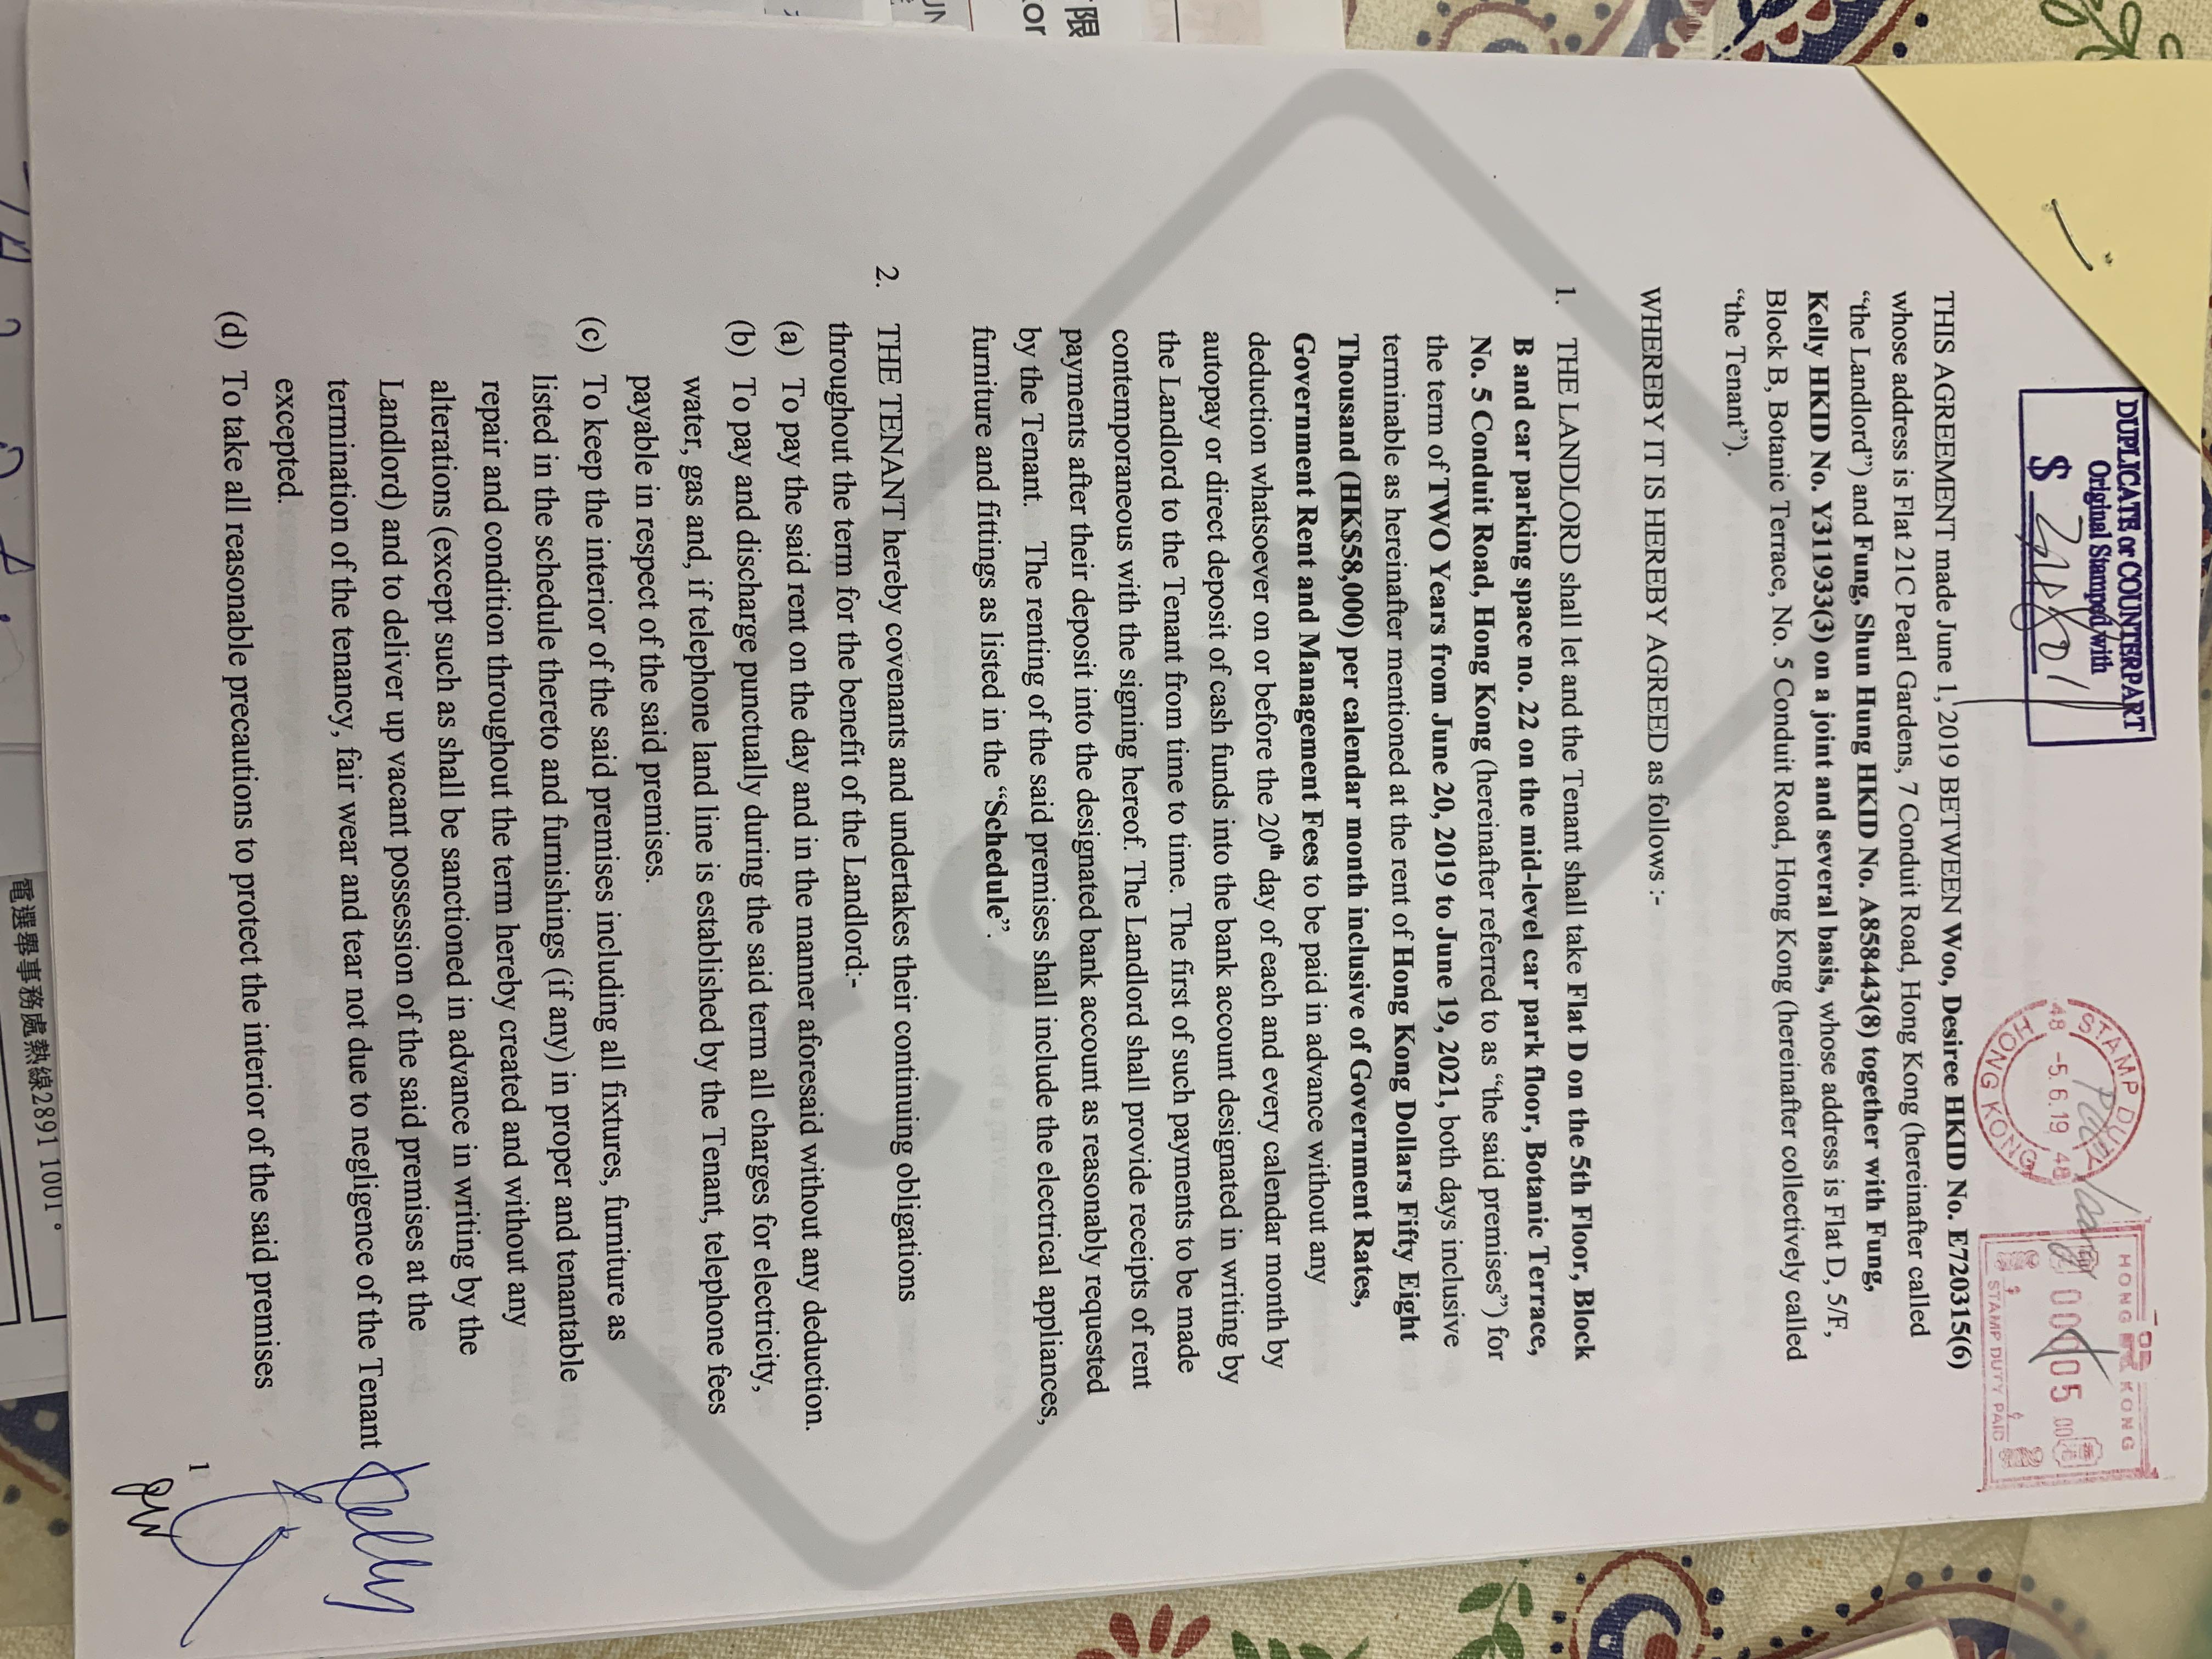 DUPLICATE or COUNTERPART
Original Stamped with
$
STAMP DUTY
48 -5.6.19 48
HONG KONG
HONG KONG
00005 00
STAMP DUTY PAID
THIS AGREEMENT made June 1, 2019 BETWEEN Woo, Desiree HKID No. E720315(6)
whose address is Flat 21C Pearl Gardens, 7 Conduit Road, Hong Kong (hereinafter called
“the Landlord”) and Fung, Shun Hung HKID No. A858443(8) together with Fung,
Kelly HKID No. Y311933(3) on a joint and several basis, whose address is Flat D, 5/F,
Block B, Botanic Terrace, No. 5 Conduit Road, Hong Kong (hereinafter collectively called
“the Tenant”).
WHEREBY IT IS HEREBY AGREED as follows :-
1. THE LANDLORD shall let and the Tenant shall take Flat D on the 5th Floor, Block
B and car parking space no. 22 on the mid-level car park floor, Botanic Terrace,
No. 5 Conduit Road, Hong Kong (hereinafter referred to as “the said premises”) for
the term of TWO Years from June 20, 2019 to June 19, 2021, both days inclusive
terminable as hereinafter mentioned at the rent of Hong Kong Dollars Fifty Eight
Thousand (HK$58,000) per calendar month inclusive of Government Rates,
Government Rent and Management Fees to be paid in advance without any
deduction whatsoever on or before the 20th day of each and every calendar month by
autopay or direct deposit of cash funds into the bank account designated in writing by
the Landlord to the Tenant from time to time. The first of such payments to be made
contemporaneous with the signing hereof. The Landlord shall provide receipts of rent
payments after their deposit into the designated bank account as reasonably requested
by the Tenant. The renting of the said premises shall include the electrical appliances,
furniture and fittings as listed in the “Schedule”.
2. THE TENANT hereby covenants and undertakes their continuing obligations
throughout the term for the benefit of the Landlord:-
(a) To pay the said rent on the day and in the manner aforesaid without any deduction.
(b) To pay and discharge punctually during the said term all charges for electricity,
water, gas and, if telephone land line is established by the Tenant, telephone fees
payable in respect of the said premises.
(c) To keep the interior of the said premises including all fixtures, furniture as
listed in the schedule thereto and furnishings (if any) in proper and tenantable
repair and condition throughout the term hereby created and without any
alterations (except such as shall be sanctioned in advance in writing by the
Landlord) and to deliver up vacant possession of the said premises at the
termination of the tenancy, fair wear and tear not due to negligence of the Tenant
excepted.
(d) To take all reasonable precautions to protect the interior of the said premises
COPY
1
Kelly
電選舉事務處熱線2891 1001。
限